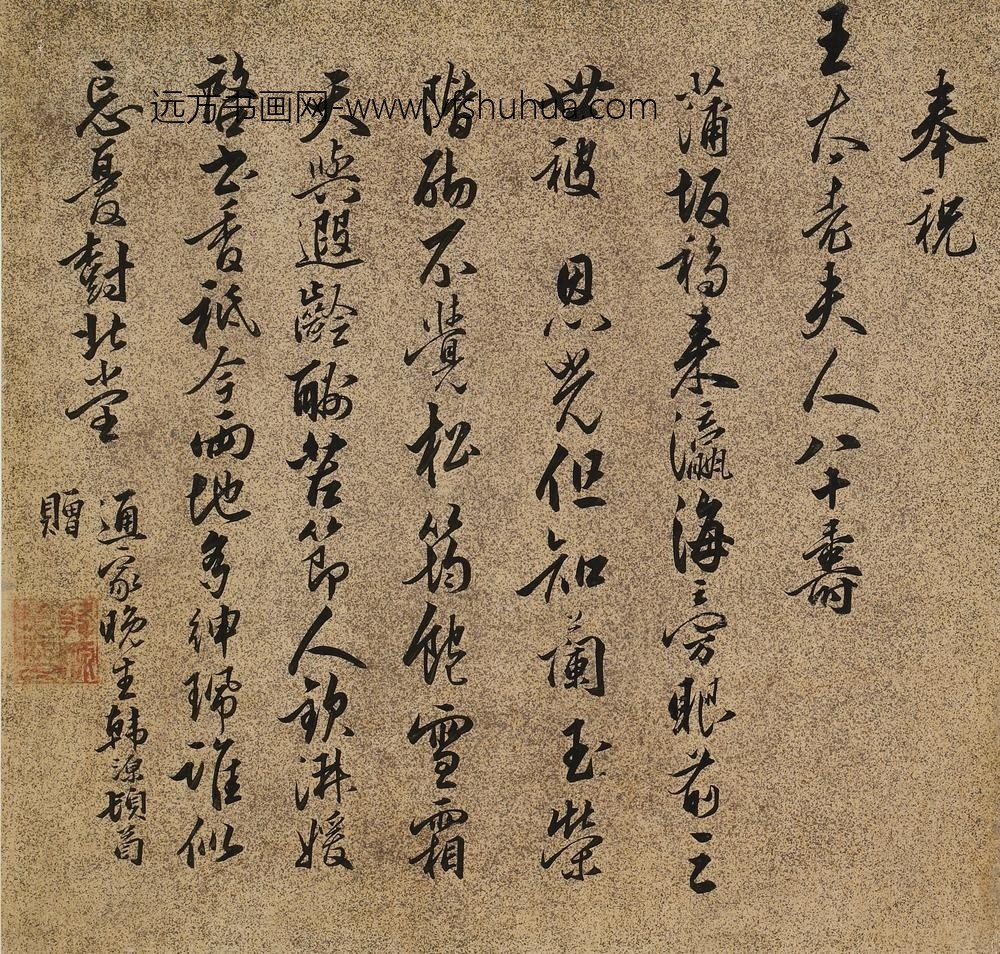 奉祝
王太老夫人八十壽
蒲坂移來瀛海旁眼前三
世被恩光但知蘭玉榮
階砌不覺松筠飽雪霜
天與遐齡酬苦節人欽淑媛
啟書香祗今兩地多紳珮誰似
忘憂對北堂
通家晚生韓源頓首
贈
远方书画网-www.yfshuhua.com